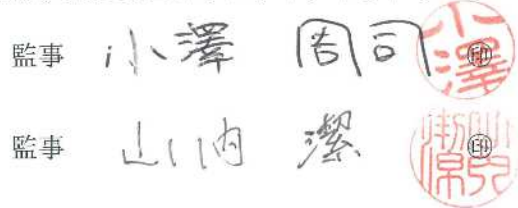 監事 小澤 周司 ㊞
監事 山内 潔 ㊞